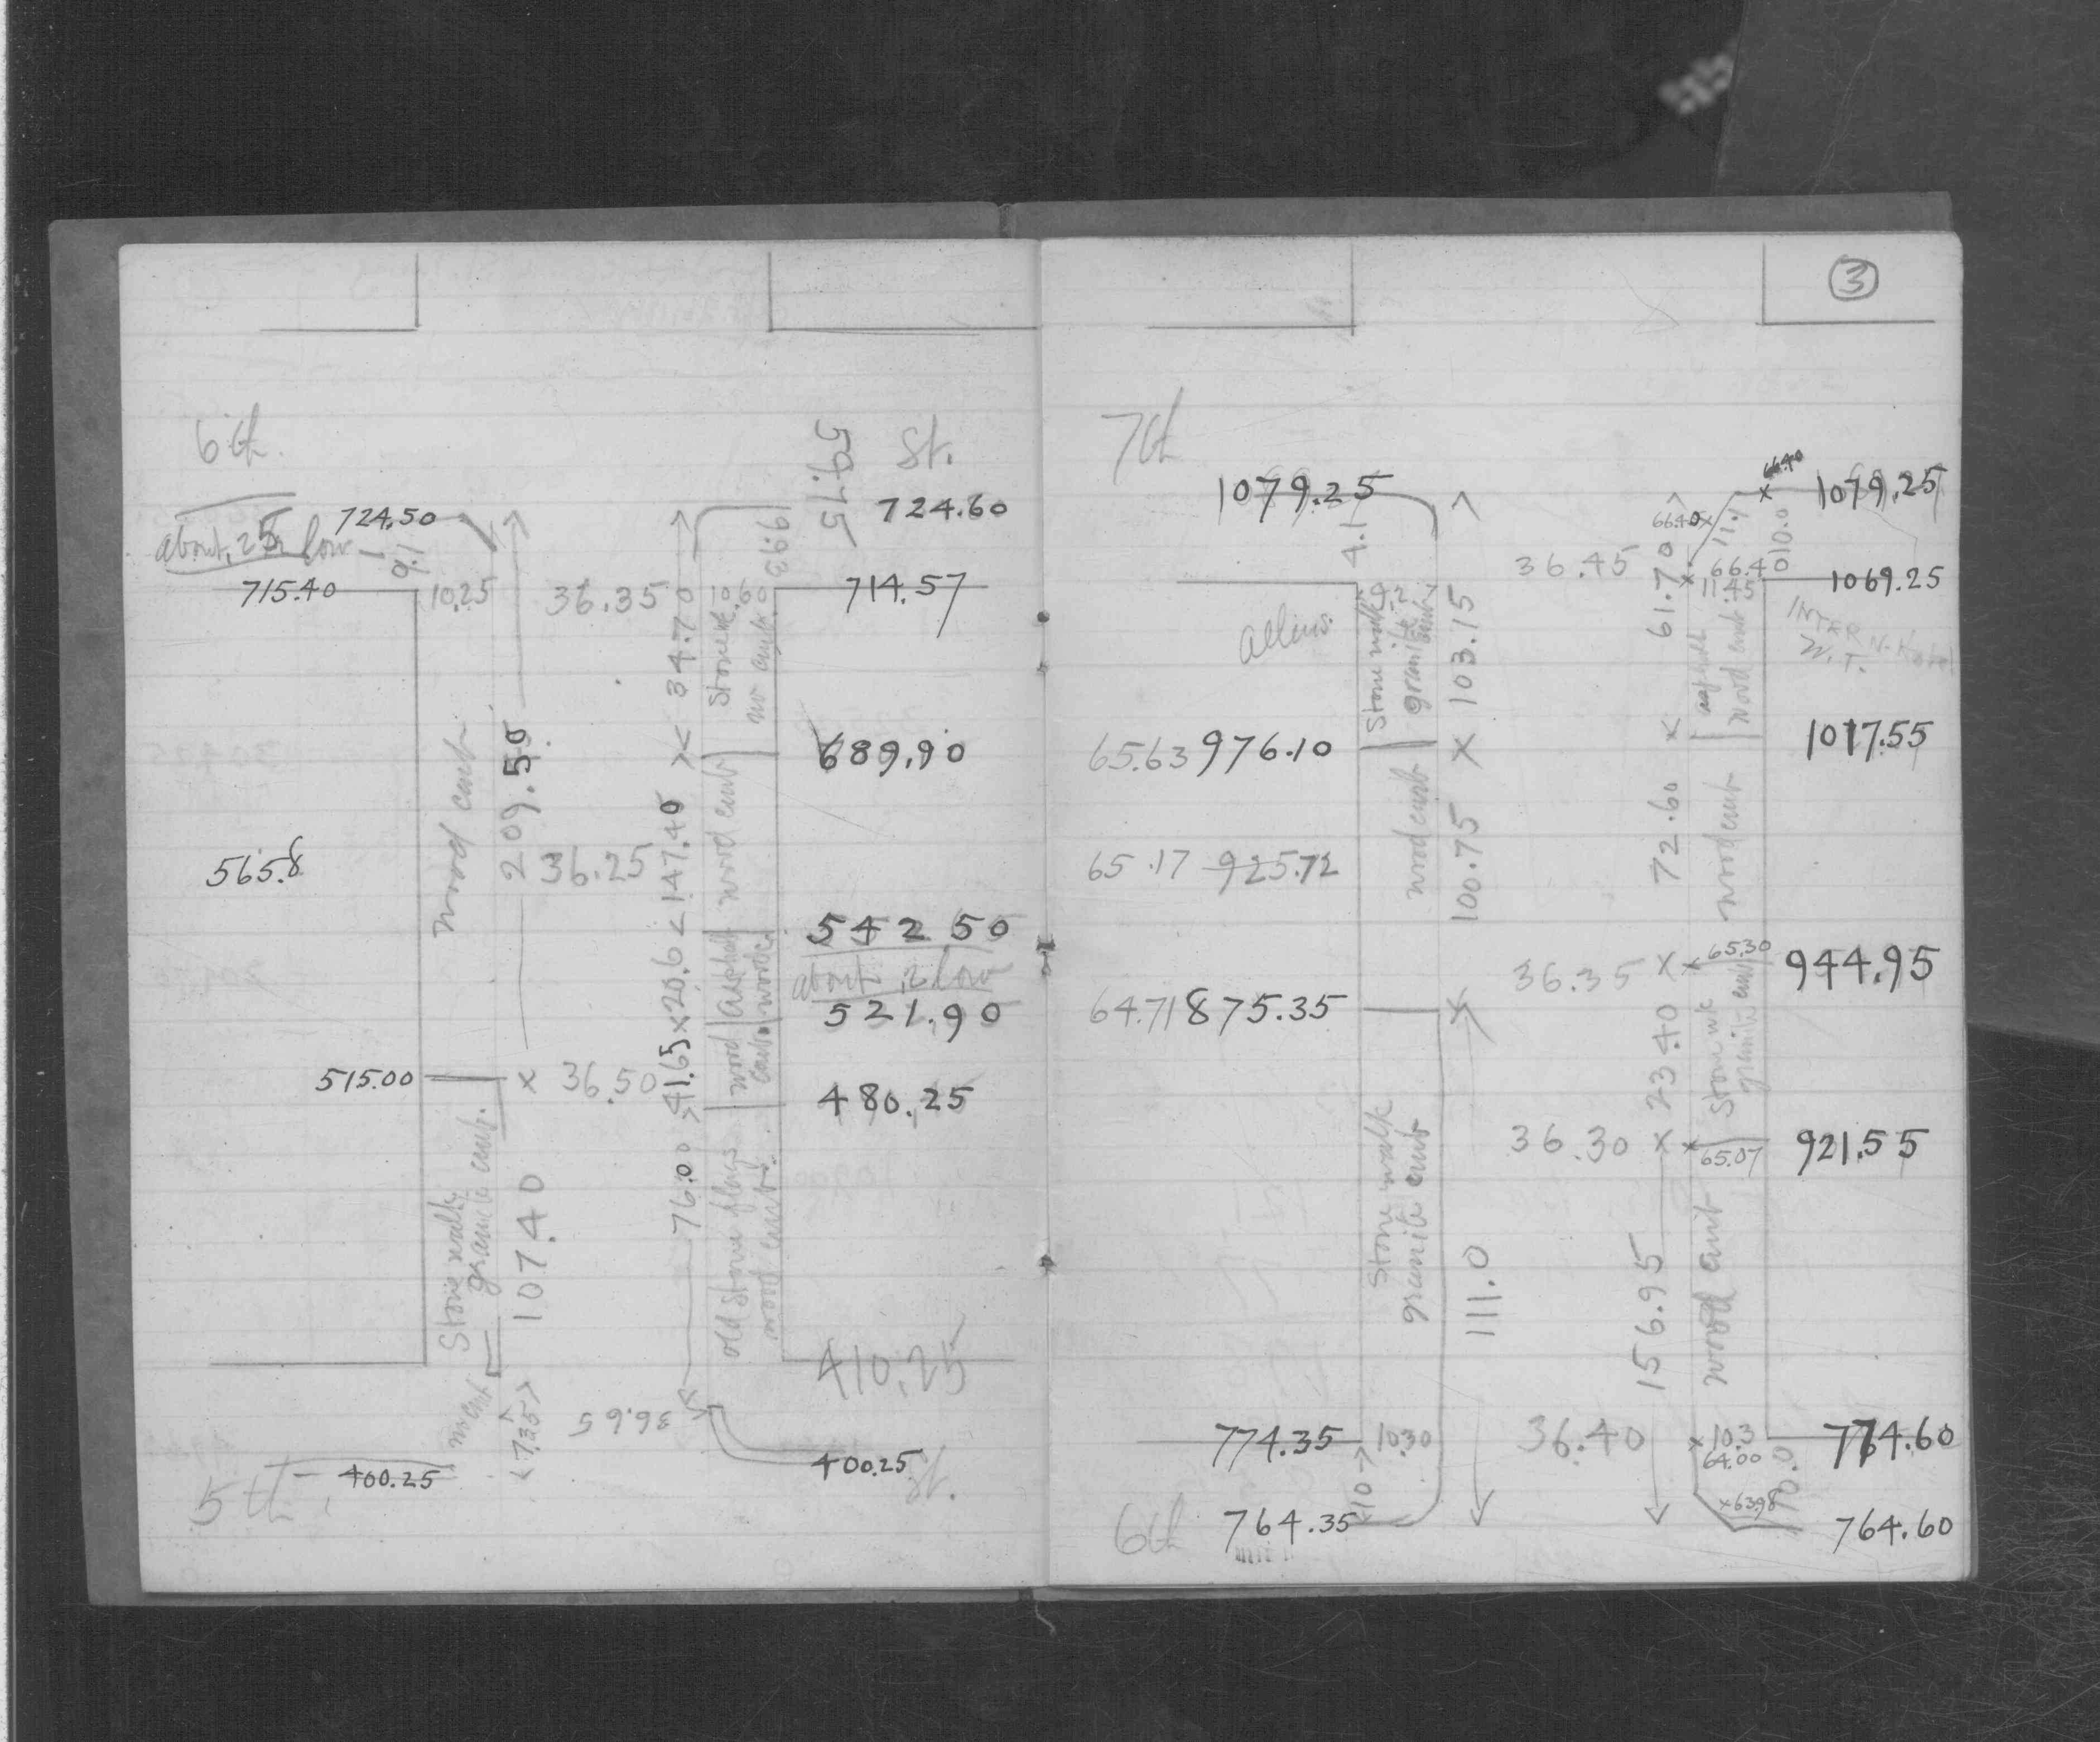 6th.
St.
56.75
724.50
724.60
about .25 low
9.1
9.93
715.40
10.25
36.35
714.57
34.70
Stone wk
no curb
689.90
wood curb
209.50
147.40
wood curb
565.8
36.25
542 50
20.6
about .2 low
521.90
41.65
wood curb
515.00
36.50
480.25
Stone walk
granite curb.
107.40
76.00
old stone flags
wood curb.
410.25
7.35
36.65
5th
400.25
400.25
St.
3
7th
66.40
1079.25
1079.25
4.1
66.40
11.1
10.0
36.45
61.70
66.40
11.45
1069.25
Stone walk
granite curb
103.15
asphalt
wood curb
INTER
N. Hotel
W. T.
65.63
976.10
1017.55
wood curb
100.75
72.60
wood curb
65.17
925.72
36.35
65.30
944.95
64.71
875.35
23.40
Stone wk
granite curb
36.30
65.07
921.55
Stone walk
granite curb
111.0
156.95
wood curb
774.35
10.30
36.40
10.3
64.00
774.60
10
10.0
6th
764.35
63.98
764.60